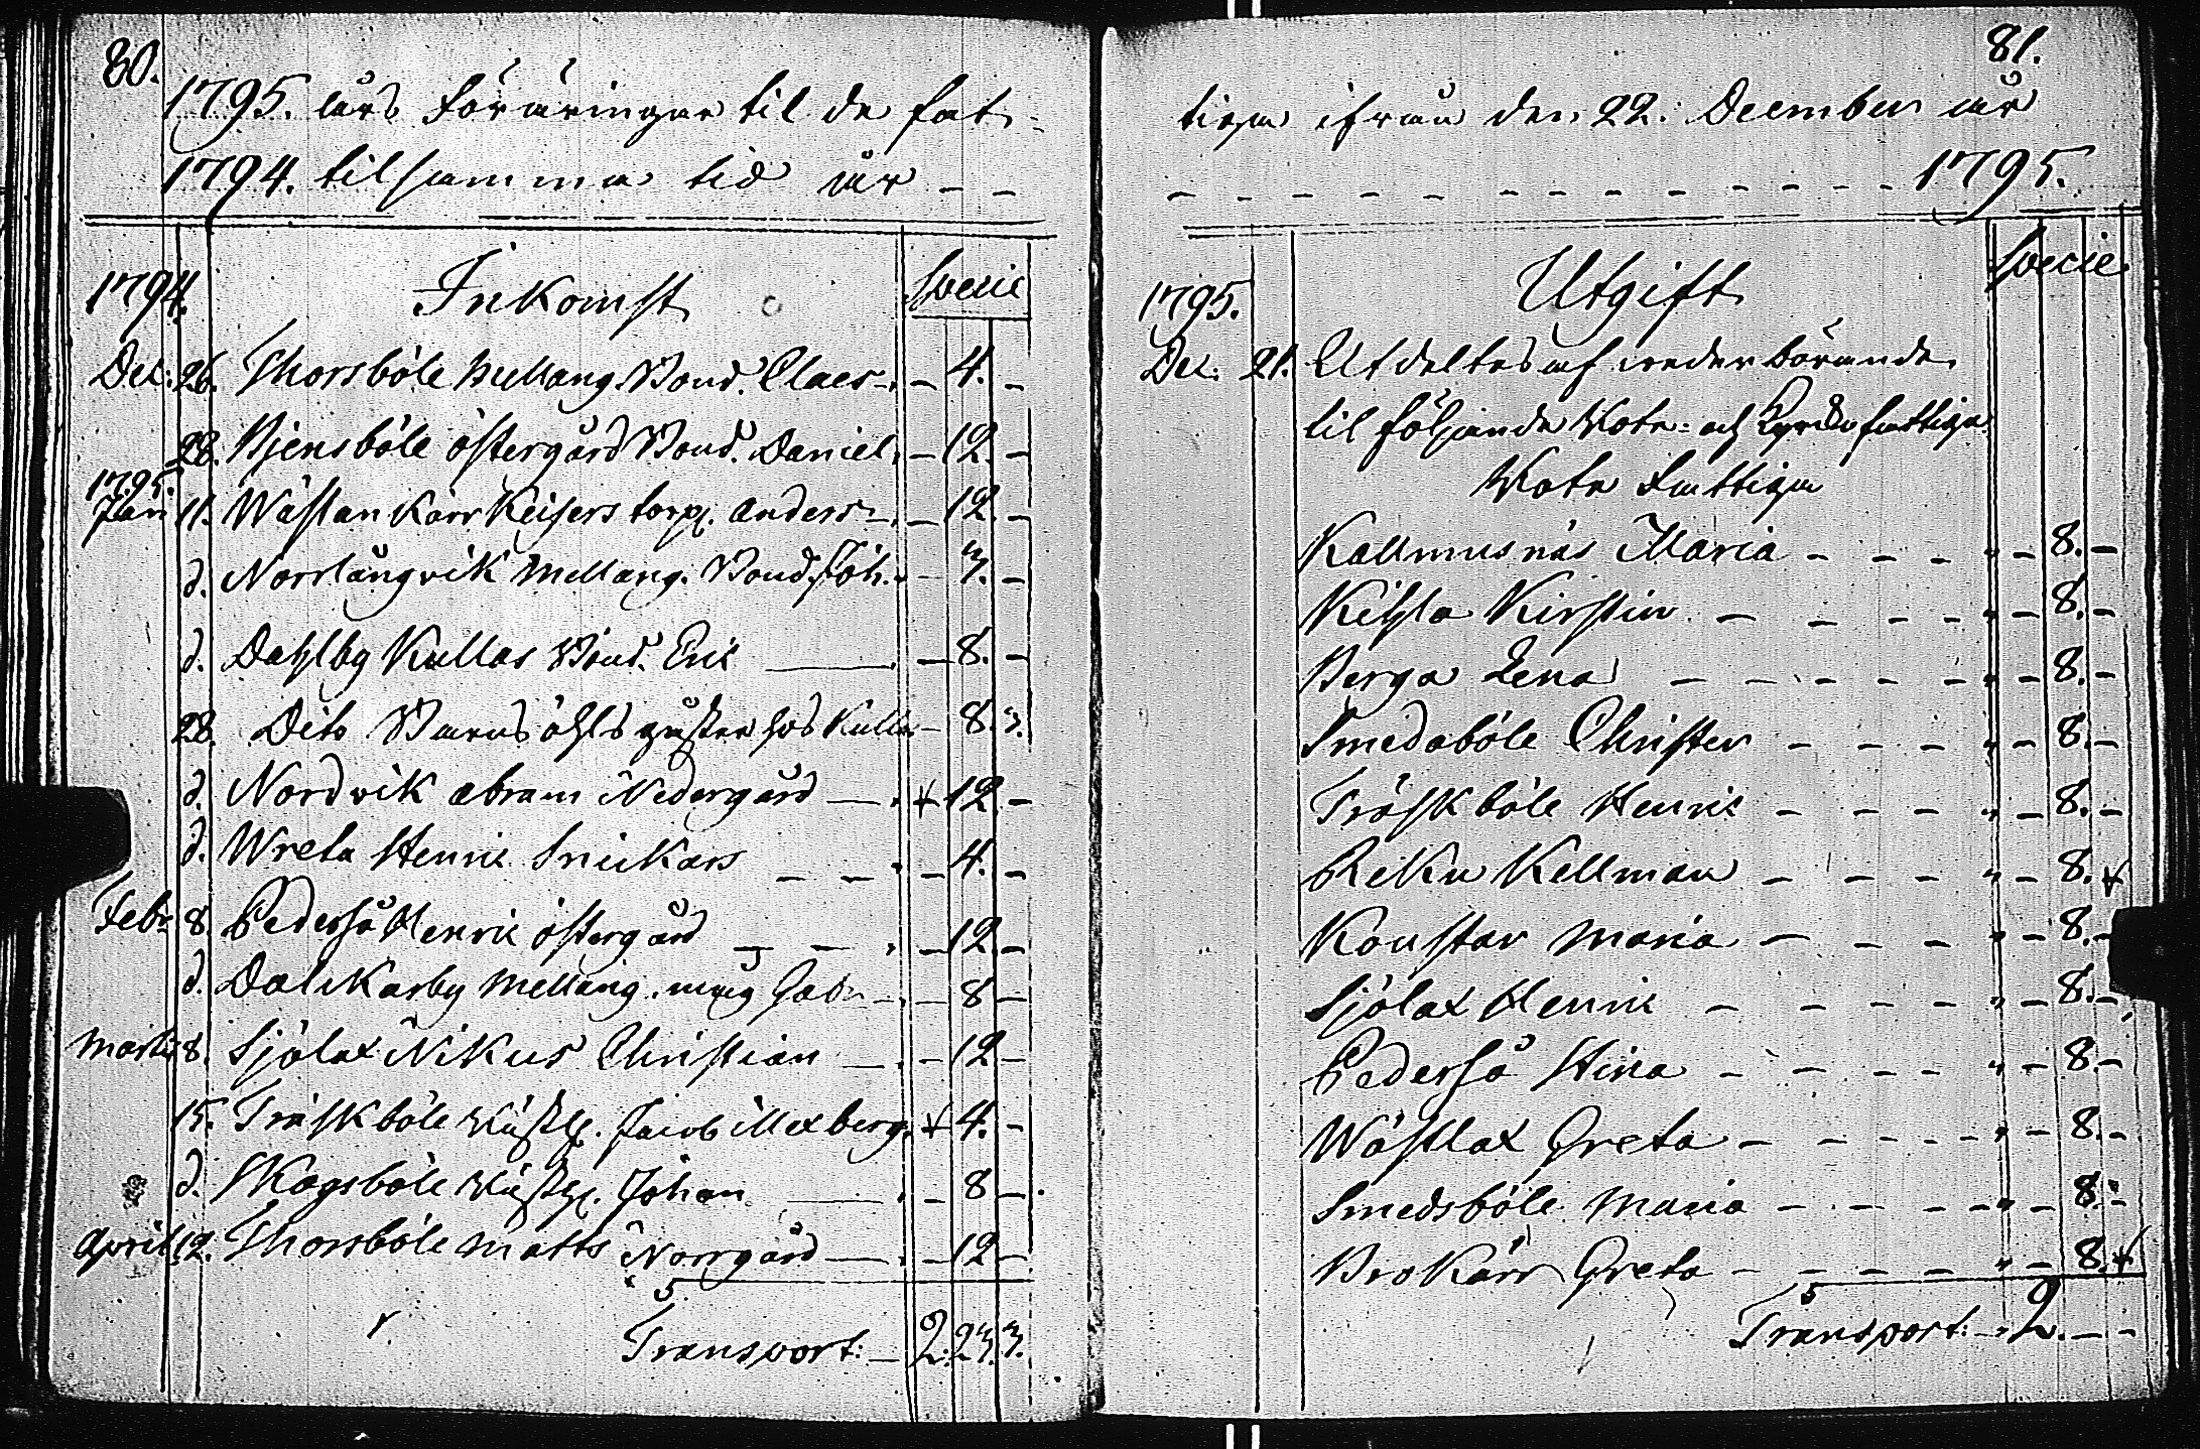 80.
1795. års Föräringar til de fat-
1794. til samma tid år - -
1794. Inkomst Specie
Dec: 26. Thorsböle Mellang. Bond. Claes - 4. -
28. Bjensböle östergård Bond. Daniel. - 12. -
1795.
Jan 11. Wästankärr Keisers torp. Anders - 12. -
d. Norrlångvik Mellang. Bond. Joh. - 3. -
d. Dahlby Kullas Bond. Eric - 8. -
28. Dito hos Kulla - 8. 3.
d. Nordvik Abram Nedergård - 12. -
d. Wreta Henric Snickars - 4. -
Febr. 8. Pederså Henric östergård - 12 -
d. Dalkarby Mellang. - 8 -
Martii 8. Sjölax Nikus Christian - 12 -
15. Träskböle Jacob Mexberg. 4. -
d. Skogsböle Johan - 8 -
April 12. Thorsböle Matts Norrgård - 12 -
Transport: - 2. 23. 3.
81.
tiga ifrån den 22. December år
- - - - - - - - - - - - 1795.
1795. Utgift Specie
Dec. 21. Utdeltes af wederbörande
til följande Rote- och fattiga
Rote Fattiga
Kallmusnäs Maria - - - " - 8. -
Kihla Kirstin - - - - " - 8. -
Berga Lena - - - - - " - 8. -
Smedaböle Christer - - - " - 8. -
Träskböle Henric - - - - " - 8. -
Reku Kellman - - - - " - 8.
Konstar Maria - - - - " - 8. -
Sjölax Henric - - - - " - 8. -
Pederså Stina - - - - " - 8. -
Wästlax Greta - - - - - " - 8. -
Smedsböle Maria - - - - " - 8. -
Brokärr Greta - - - - " - 8.
Transport: - 2. - -